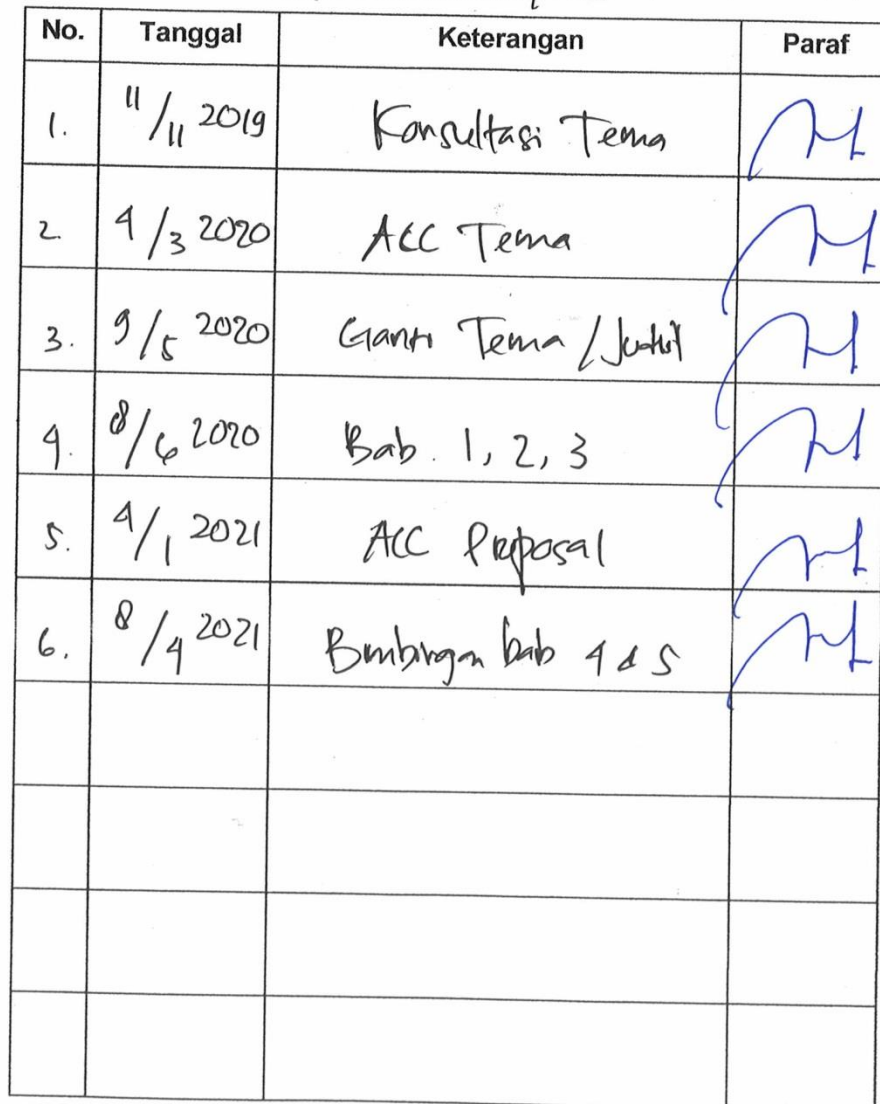 No. Tanggal Keterangan Paraf
1. 11/11 2019 Konsultasi Tema
2. 4/3 2020 ACC Tema
3. 9/5 2020 Ganti Tema / Judul
4. 8/6 2020 Bab. 1, 2, 3
5. 4/1 2021 ACC Proposal
6. 8/4 2021 Bimbingan bab 4 & 5